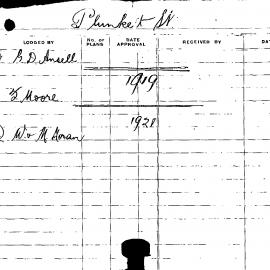 Plunkett St
LODGED BY No. of PLANS DATE APPROVAL RECEIVED BY DAT
G. D. Ansell
1919
Moore
1928
W. M Horan